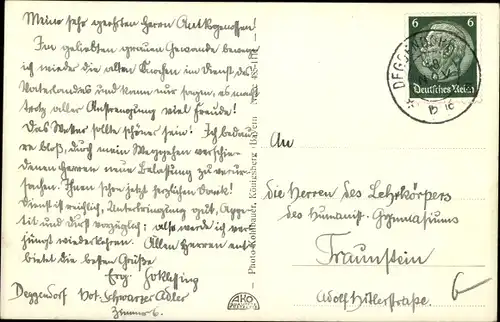 Meine sehr geehrten Herren Amtsgenossen!
Im geliebten grauen Gewande bewege
ich wieder die alten Knochen im Dienst des
Vaterlandes und kann nur sagen, es macht
trotz aller Anstrengung viel Freude!
Das Wetter sollte schöner sein! Ich bedau-
re bloß, durch mein Weggehen verschie-
denen Herren neue Belastung zu verur-
sachen. Ihnen schon jetzt herzlichen Dank!
Dienst ist reichlich, Unterbringung gut, Appe-
tit und Durst vorzüglich: also werde ich ver-
jüngt wiederkehren. Allen Herren ent-
bietet die besten Grüße
Deggendorf Hot. Schwarzer Adler
Zimmer 6.
Photo Kohlbauer, Königsberg, Bayern
6 6
Deutsches Reich
DEGGENDORF
An
die Herren des Lehrkörpers
des Humanist. Gymnasiums
Traunstein
Adolf Hitlerstraße.
6